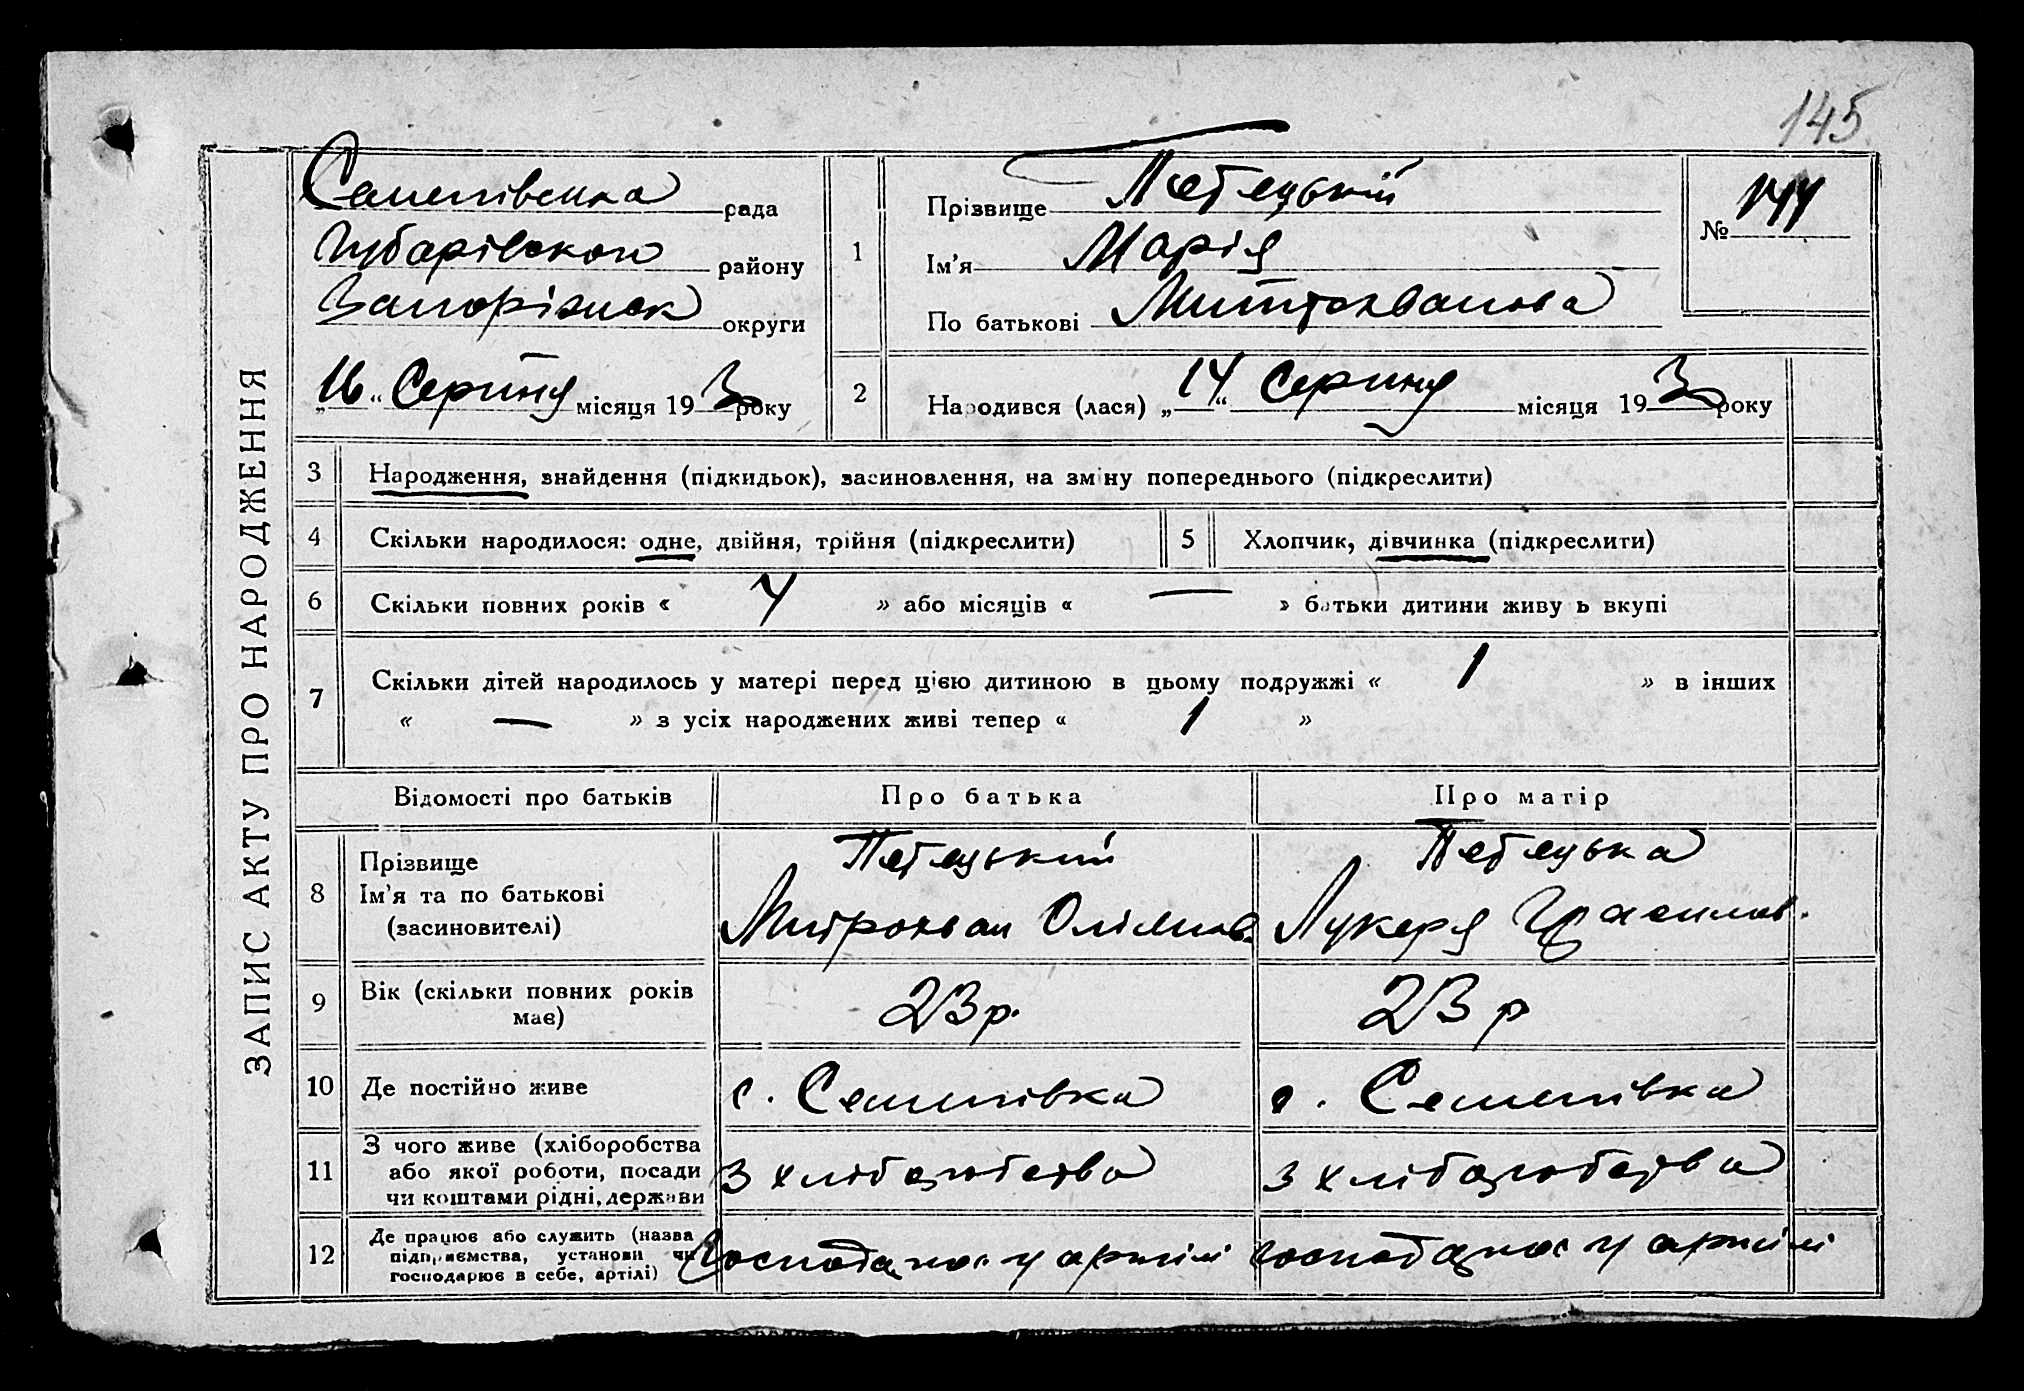 145
ЗАПИС АКТУ ПРО НАРОДЖЕННЯ
Семенівська рада
Губарівского району
Запоріжск округи
„16“ Серпня місяця 1930 року
1
Прізвище
Ім’я Марія
По батькові Митрохванова
№ 144
2
Народився (лася) „14“ Серпня місяця 1930 року
3 Народження, знайдення (підкидьок), засиновлення, на зміну попереднього (підкреслити)
4 Скільки народилося: одне, двійня, трійня (підкреслити)
5 Хлопчик, дівчинка (підкреслити)
6 Скільки повних років « 4 » або місяців « — » батьки дитини живуть вкупі
7 Скільки дітей народилось у матері перед цією дитиною в цьому подружжі « 1 » в інших
« — » з усіх народжених живі тепер « 1 »
Відомості про батьків Про батька Про матір
8 Прізвище
Ім’я та по батькові
(засиновителі)
Митрохван
Лукеря
9 Вік (скільки повних років
має)
23 р. 23 р
10 Де постійно живе с. Семенівка с. Семенівка
11 З чого живе (хліборобства
або якої роботи, посади
чи коштами рідні, держави
З хліборобства З хліборобства
12 Де працює або служить (назва
підприємства, установи чи
господарює в себе, артілі)
Господарює у артілі господарює у артілі